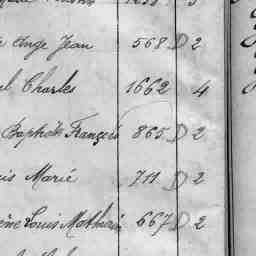 Ange Jean 568 D 2
Charles 1662 4
Baptiste François 865 D 2
is Marie 711 D 2
ène Louis Mathurin 667 D 2